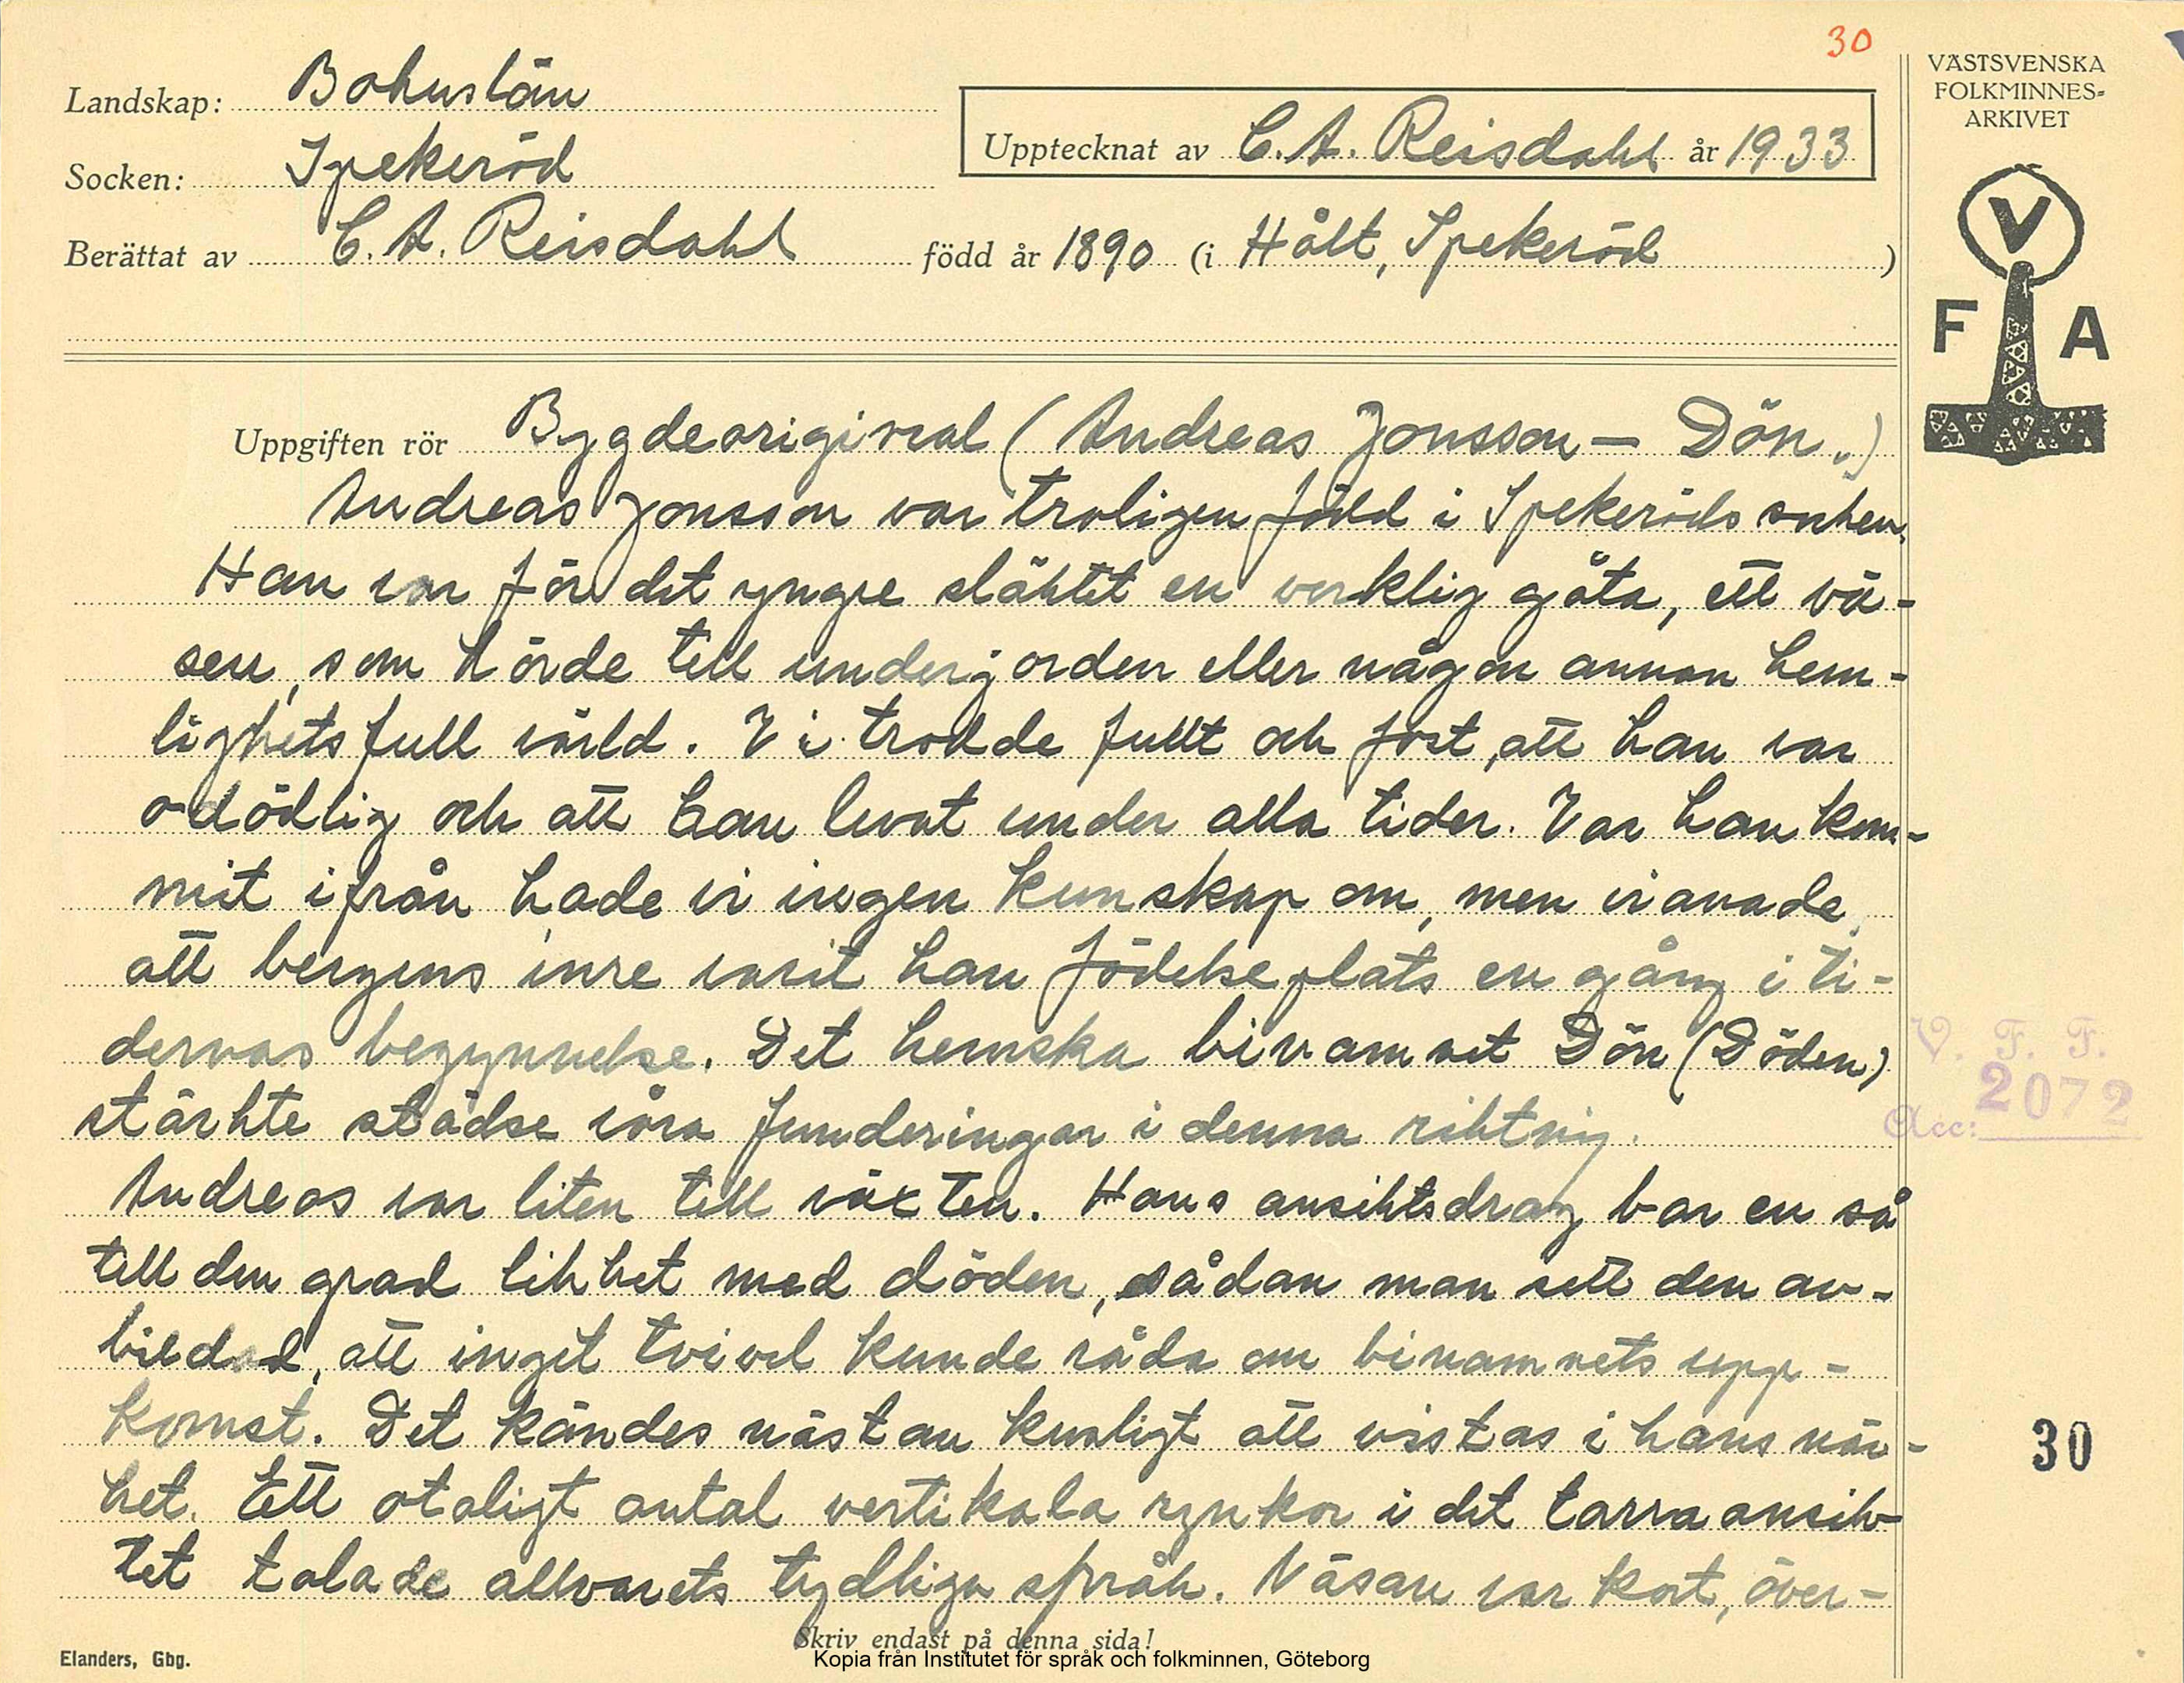 30
Landskap: Bohuslän
Socken: Spekeröd
Berättat av C. A. Reisdahl född år 1890 (i Hält, Spekeröd)
Upptecknat av C. A. Reisdahl år 1933
VÄSTSVENSKA
FOLKMINNES-
ARKIVET
V
F A
Uppgiften rör Bygdeoriginal (Andreas Jonsson — Dön.)
Andreas Jonsson var troligen född i Spekeröds socken.
Han var för det yngre släktet en verklig gåta, ett vä-
sen, som hörde till underjorden eller någon annan hem-
lighetsfull värld. Vi trodde fullt och fast, att han var
odödlig och att han levat under alla tider. Var han kom-
mit ifrån hade vi ingen kunskap om, men vi anade,
att bergens inre varit han födelseplats en gång i ti-
dernas begynnelse. Det hemska binamnet Dön (Döden)
stärkte städse våra funderingar i denna riktnig.
Andreas var liten till växten. Hans ansiktsdrag bar en så
till den grad likhet med döden, sådan man sett den av-
bildad, att inget tvivel kunde råda om binamnets upp-
komst. Det kändes nästan kusligt att vistas i hans när-
het. Ett otaligt antal vertikala rynkor i det tarra ansik-
tet talade allvarets tydliga språk. Näsan var kort, över-
V. F. F.
Acc: 2072
30
Skriv endast på denna sida!
Elanders, Gbg.
Kopia från Institutet för språk och folkminnen, Göteborg